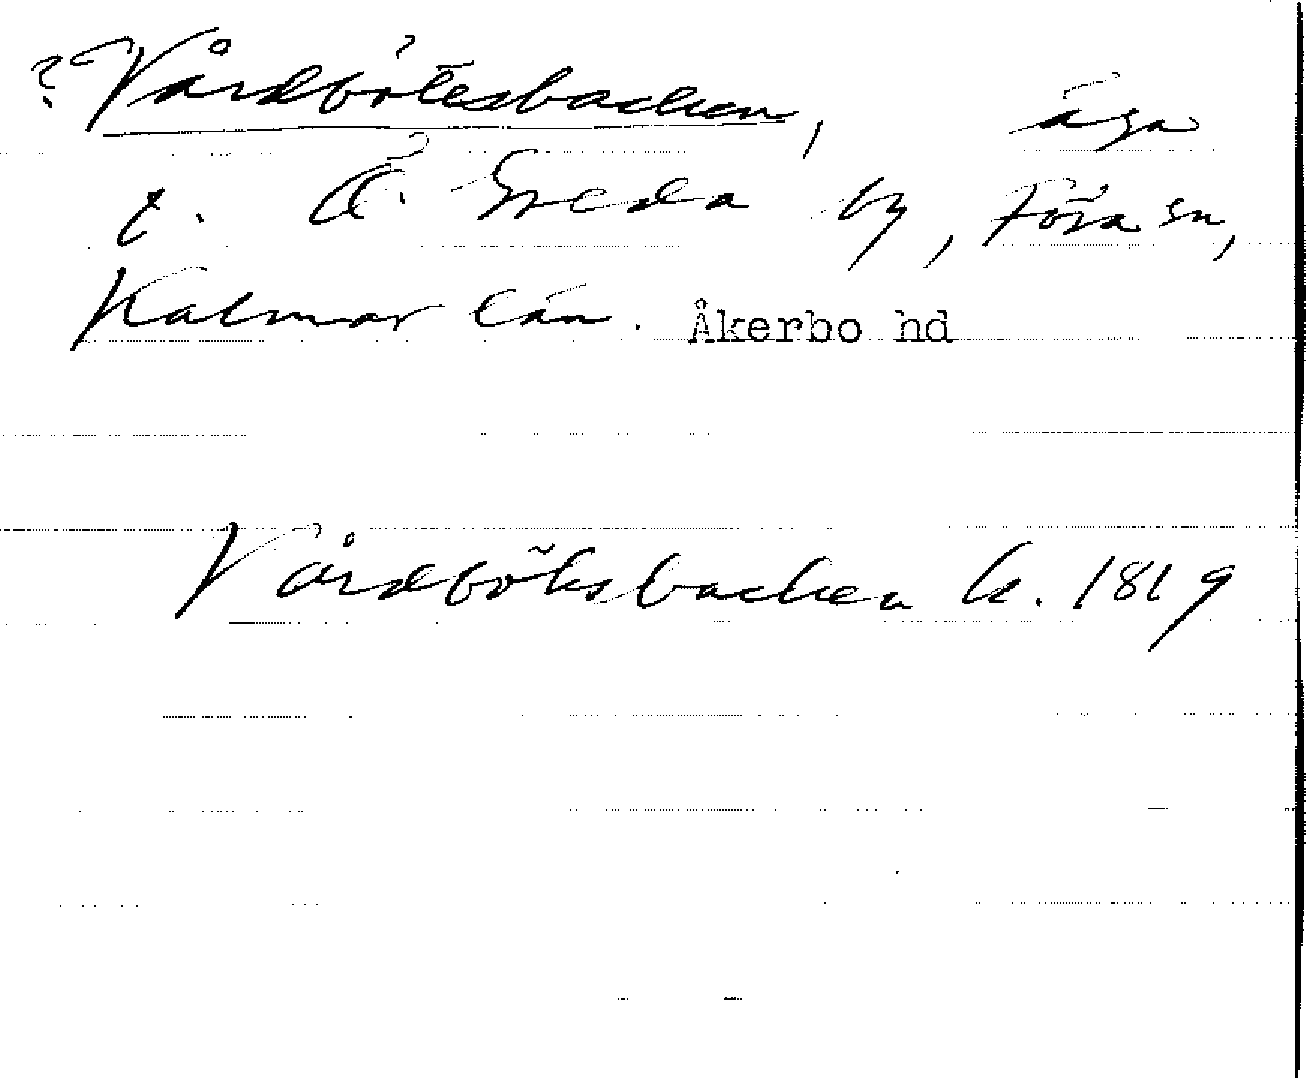 ? Vårdbötesbacken, äga
t. Ö. Greda by, Föra sn,
Kalmar län. Åkerbo hd
Vårdböksbacken k. 1819